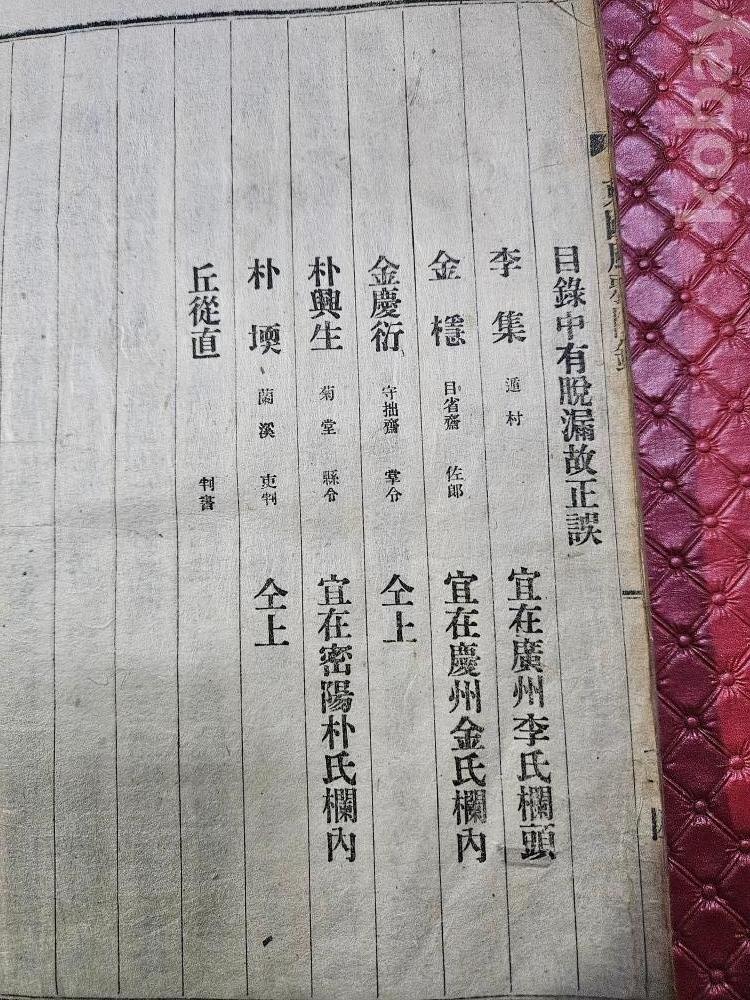 目錄中有脫漏故正誤
李集 遁村 宜在廣州李氏欄頭
金檼 日省齋 佐郎 宜在慶州金氏欄內
金慶衍 守拙齋 掌令 仝上
朴興生 菊堂 縣令 宜在密陽朴氏欄內
朴堧 蘭溪 吏判 仝上
丘從直 判書
kobay